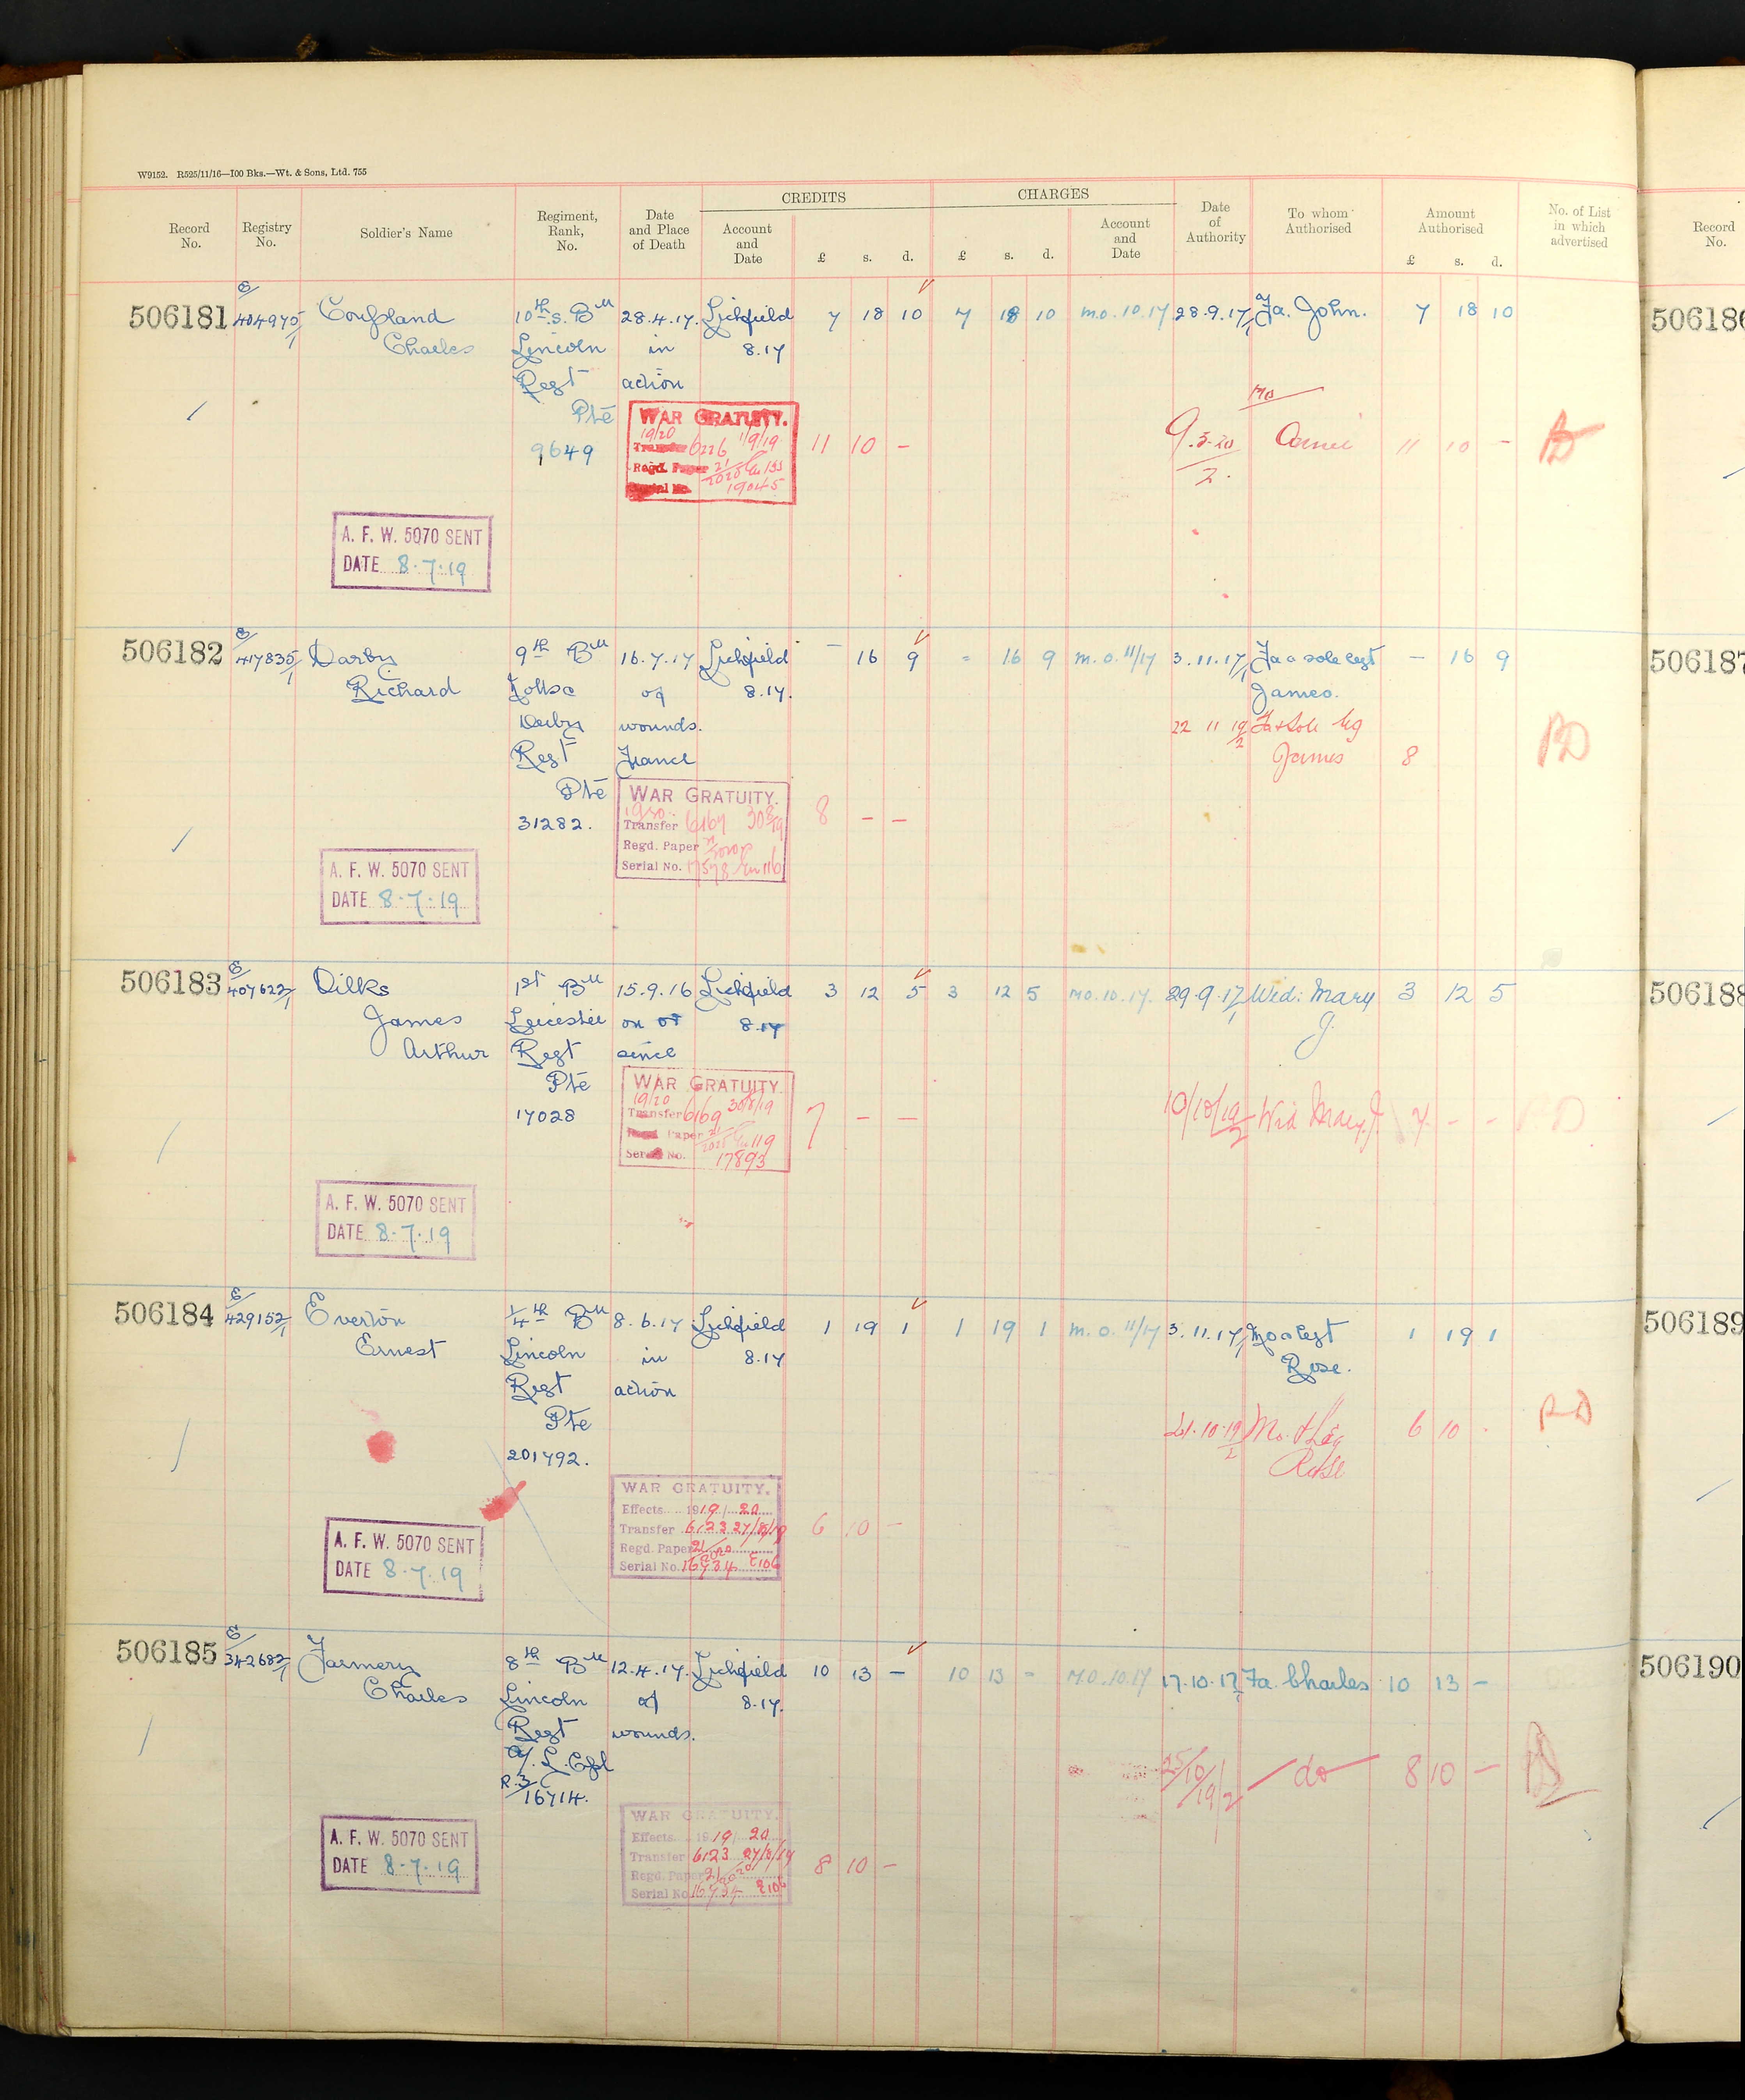 W9152. R525/11/16—100 Bks.—Wt. & Sons, Ltd. 755
Record No.
Registry No.
Soldier's Name
Regiment, Rank, No.
Date and Place of Death
CREDITS
Account and Date
£ s. d.
CHARGES
£ s. d.
Account and Date
Date of Authority
To whom Authorised
Amount Authorised
£ s. d.
No. of List in which advertised
Record No.
506181 E/404975/1 Coupland 10th S. Bn 28.4.17. Lichfield 7 18 10 7 18 10 M.O. 10.17 28.9.17/1 Fa. John. 7 18 10
506186
Charles Lincoln in 8.17
Regt action
Pte
9649
WAR GRATUITY.
19/20
Transfer 6226 1/9/19
Regd. Paper 21/2020
Serial No. 19045
11 10 –
9.3.20/2 11 10 –
A. F. W. 5070 SENT
DATE 8.7.19
506182 E/417835/1 Darby 9th Bn 16.7.17 Lichfield – 16 9 – 16 9 M.O. 11/17 3.11.17/1 Fa & sole legt – 16 9
506187
Richard Notts & of 8.17.
James.
Derby wounds.
22 11 19/2 Fa & Sole leg
Regt France
James 8
Pte
31282.
WAR GRATUITY.
Transfer 6169 30/8/19
Regd. Paper
Serial No. 17578
8 – –
A. F. W. 5070 SENT
DATE 8.7.19
506183 E/407622/1 Dilks 1st Bn 15.9.16 Lichfield 3 12 5 3 12 5 M.O. 10.17. 29.9.17/1 Wid: Mary 3 12 5
506188
J.
James Leicester on or 8.17
Arthur Regt since
Pte
17028
WAR GRATUITY
19/20
Transfer 6169 30/8/19
Regd. Paper
Serial No. 17893
7 – –
10/10/19/2 Wid Mary J. 7 – –
A. F. W. 5070 SENT
DATE 8.7.19
506184 E/429152/1 Everton 1/4th Bn 8.6.17 Lichfield 1 19 1 1 19 1 M.O. 11/17 3.11.17/1 Mo & legt 1 19 1
506189
Ernest Lincoln in 8.17
Rose.
Regt action
Pte
201792.
21.10.19 Mo. & Leg 6 10
Rose
RD
WAR GRATUITY.
Effects 1919/20
Transfer 6123 27/8/19
Regd. Paper 21/2020
Serial No. 16734 E106
6 10 –
A. F. W. 5070 SENT
DATE 8.7.19
506185 E/342682/1 Farmery 8th Bn 12.4.17. Lichfield 10 13 – 10 13 – M.O. 10.17 17.10.17 Fa. Charles 10 13 –
506190
Charles Lincoln of 8.17.
Regt wounds.
A/. L. Cpl
R.3/16714.
25/10/19/2 do 8 10 –
WAR GRATUITY.
Effects 1919/20
Transfer 6123 27/8/19
Regd. Paper 21/2020
Serial No. 16734 E106
8 10 –
A. F. W. 5070 SENT
DATE 8.7.19